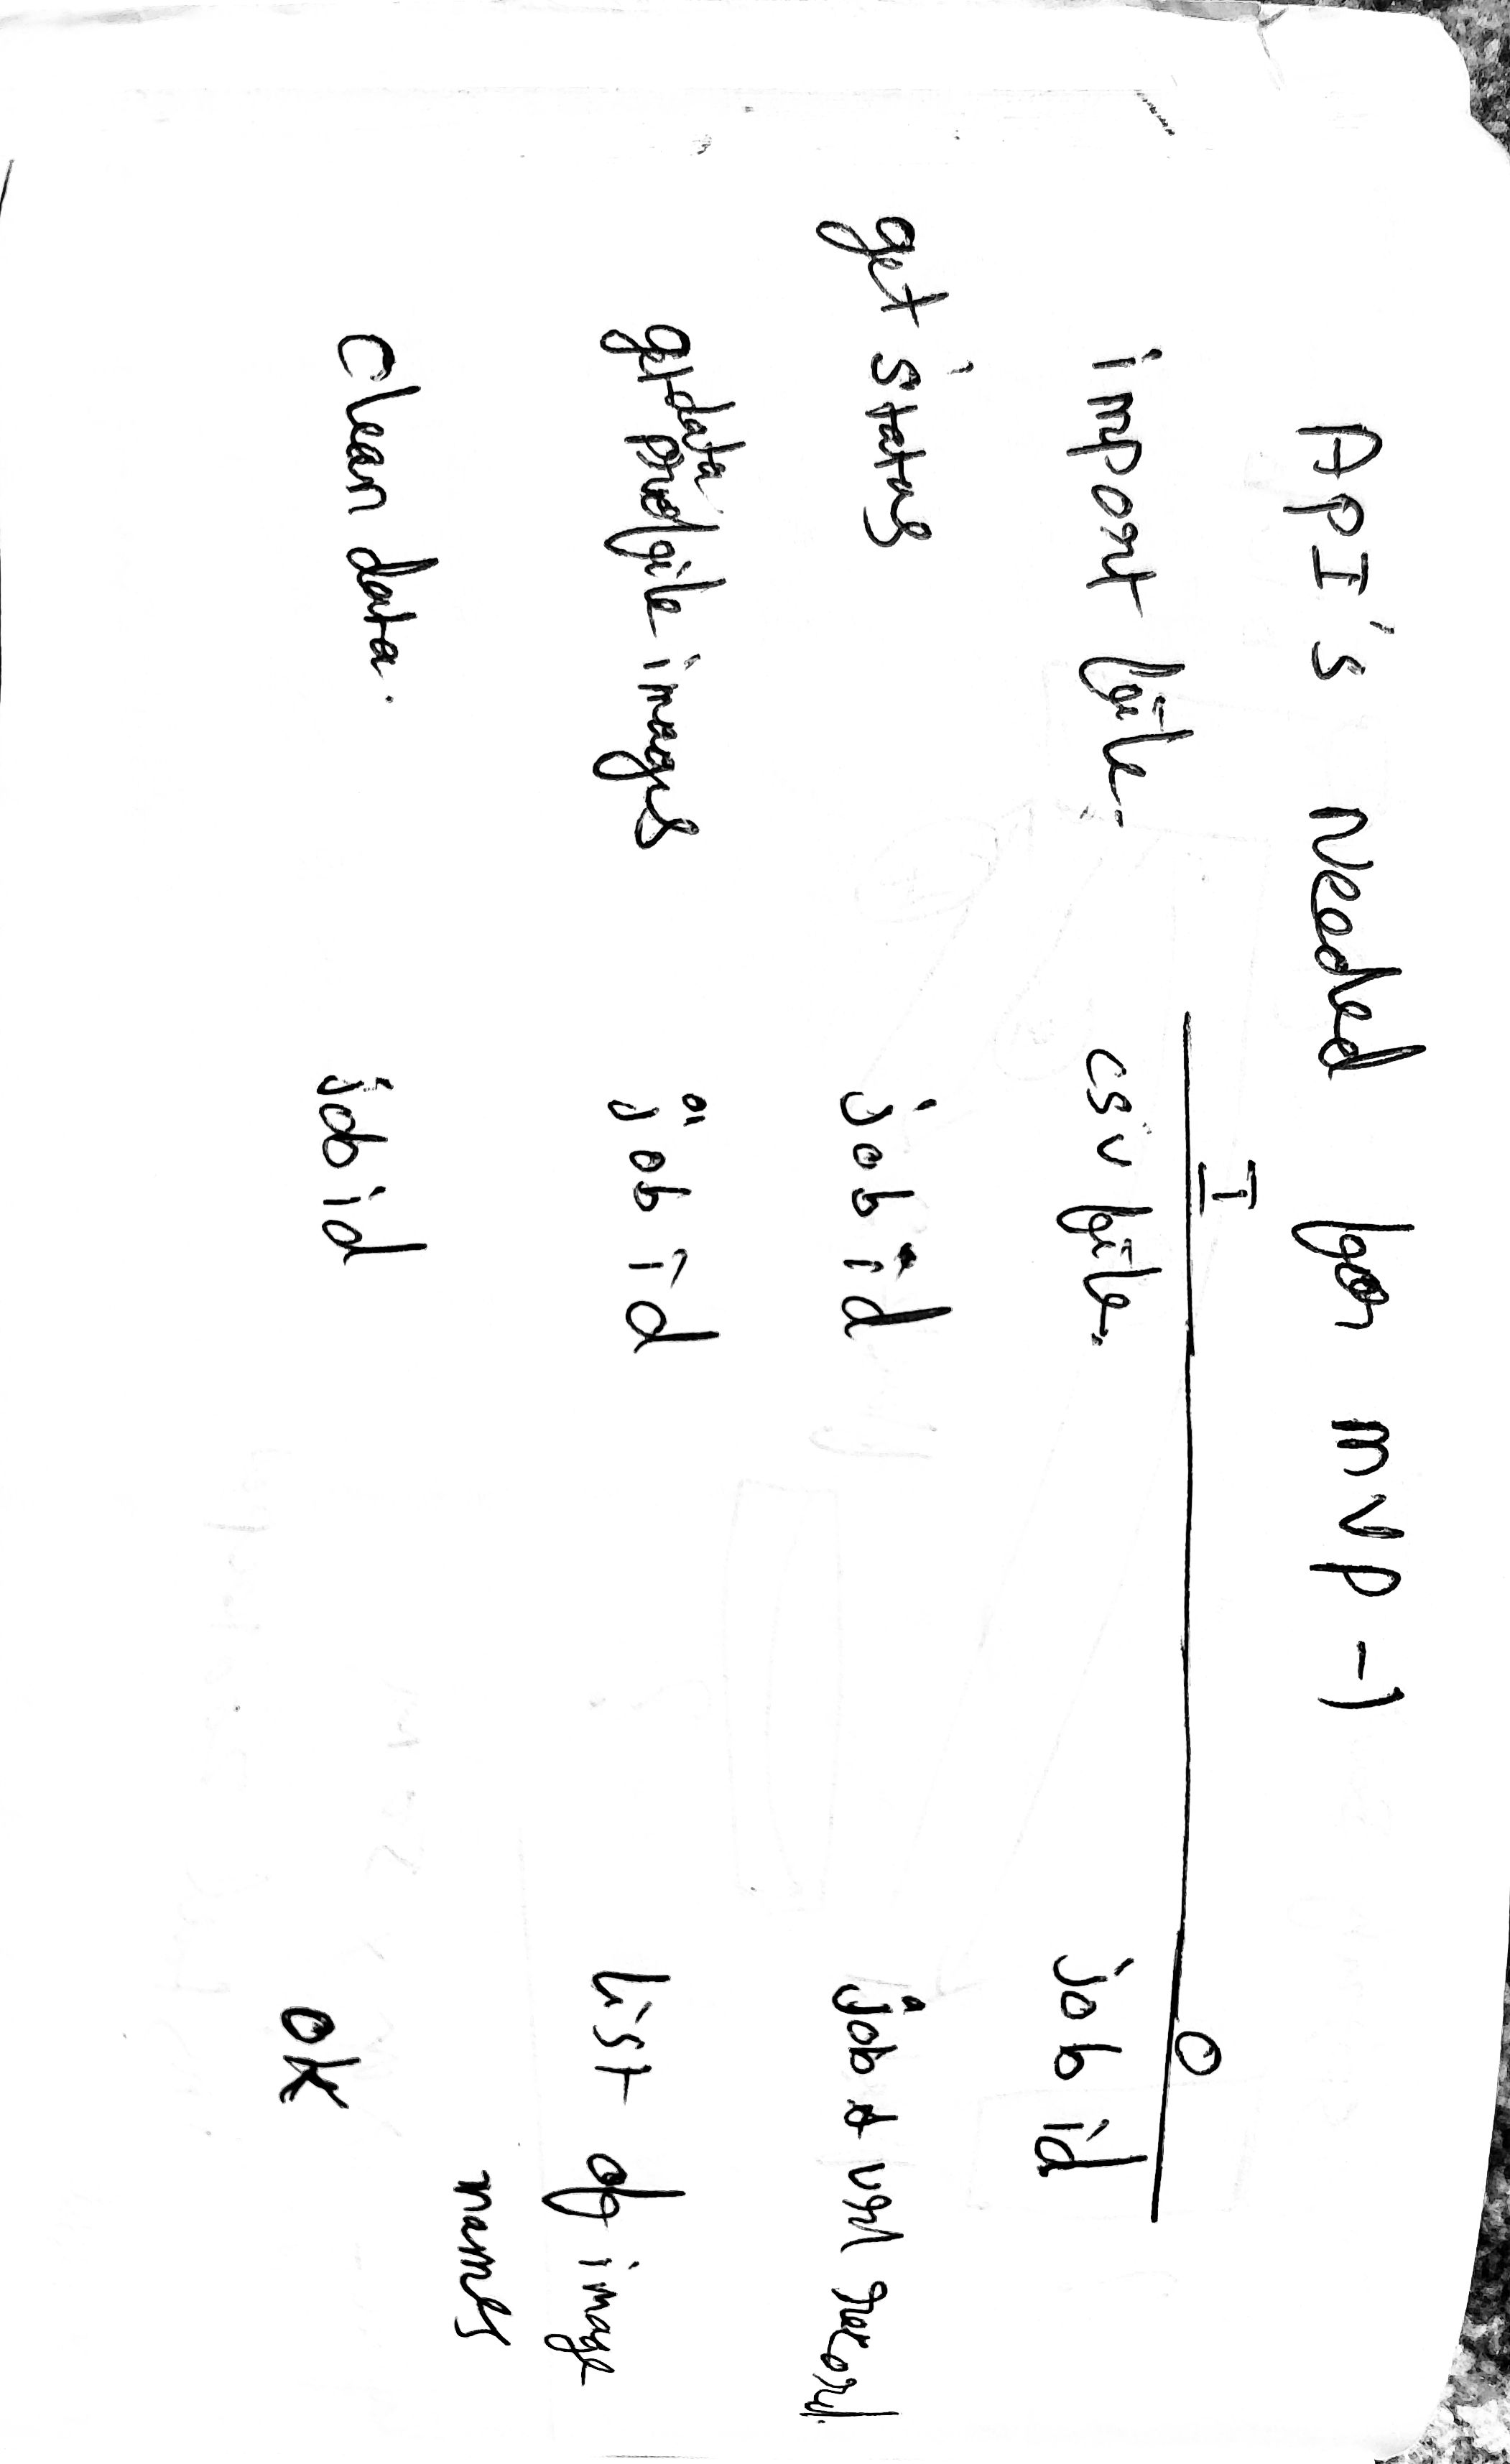 API's Needed for MVP-1
I O
import file. csv file. job id
get status job id job & url record.
get data profile images job id list of image
names
Clean data. job id OK